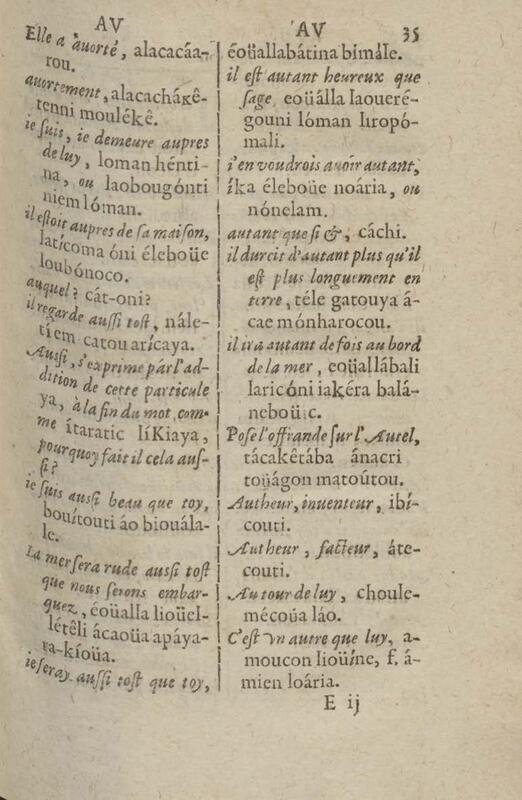 AV
Elle a auorté, alacacáa-
rou.
auortement, alacacháκê-
tenni moulékê.
ie suis, ie demeure aupres
de luy, loman hénti-
na, ou laobougónti
niem lóman.
il estoit aupres de sa maison,
laticoma óni éleboüe
loubónoco.
auquel? cát-oni?
il regarde aussi tost, nále-
tiem catou arícaya.
Aussi, s'exprime par l'ad-
dition de cette particule
ya, à la fin du mot, com-
me ítaratic líKiaya,
pourquoy fait il cela aus-
si?
ie suis aussi beau que toy,
bouítouti áo biouála-
le.
La mer sera rude aussi tost
que nous serons embar-
quez, éoüalla lioüel-
létêli ácaoüa apáya-
ra-kíoüa.
ie seray aussi tost que toy,
AV 35
éoüallabátina bimále.
il est autant heureux que
sage, eoüálla laoueré-
gouni lóman liropó-
mali.
i'en voudrois auoir autant,
íka éleboüe noária, ou
nónelam.
autant que si &, cáchi.
il durcit d'autant plus qu'il
est plus longuement en
terre, téle gatouya á-
cae mónharocou.
il ira autant de fois au bord
de la mer, eoüallábali
laricóni iaκéra balá-
neboüic.
Pose l'offrande sur l'Autel,
tácakêtába ánacri
toüágon matoútou.
Autheur, inuenteur, ibí-
couti.
Autheur, facteur, áte-
couti.
Autour de luy, choule-
mécoüa láo.
C'est vn autre que luy, a-
moucon lioüíne, f. á-
mien loária.
E ij